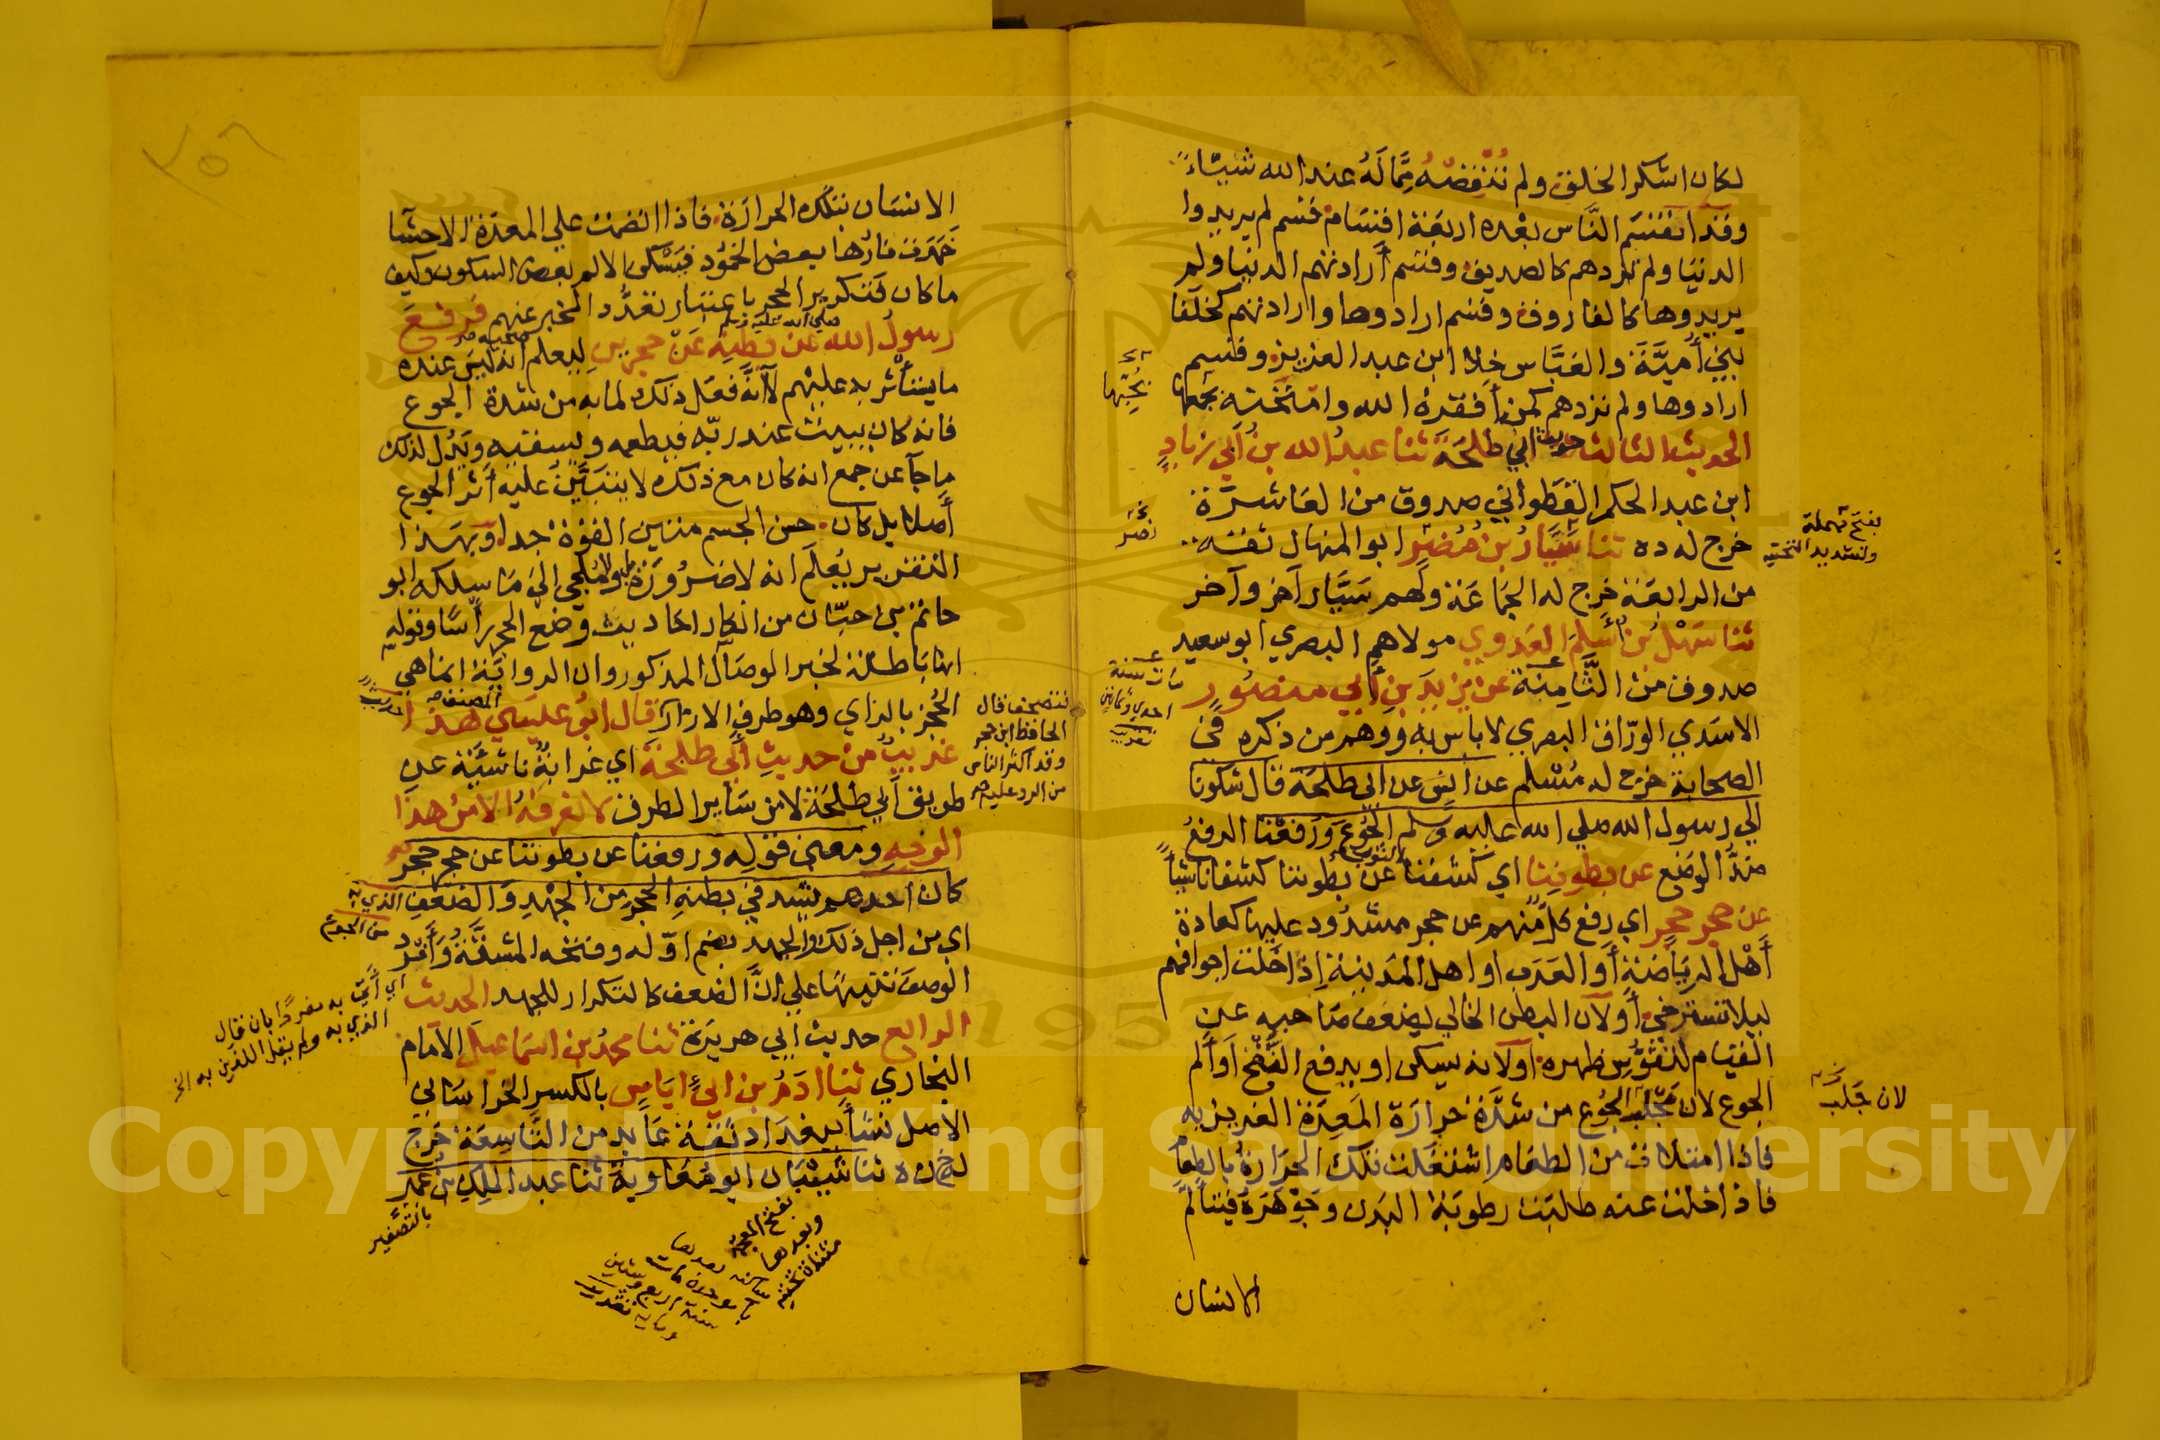 لكان اشكر الخلق ولم ننقصه مما له عند الله شيئاء
وقد انقسم الناس بعده اربعة اقسام قسم لم يريدوا
الدنيا ولم تردهم كالصديق وقسم ارادتهم الدنيا ولم
يريدوها كالفاروق وقسم ارادوها وارادتهم كخلفا
بني أمية والعباس خلا ابن عبد العزيز وقسم
ارادوها ولم تردهم كمن أفقره الله وامتحنه بجمعها
الحديث الثالث حديث ابي طلحة ثنا عبد الله بن أبي زياد
ابن عبد الحكم القطواني صدوق من العاشرة
خرج له ده ثنا سيار بن حضير ابو المنهال ثقة
من الرابعة خرج له الجماعة ولهم سيار آخر وآخر
ثنا سهل بن أسلم العدوي مولاهم البصري ابو سعيد
صدوق من الثامنة عن يزيد بن أبي منصور
الاسدي الوراق البصري لا باس به ووهم من ذكره في
الصحابة خرج له مسلم عن انس عن ابي طلحة قال شكونا
الي رسول الله صلي الله عليه وسلم الجوع ورفعنا الرفع
ضد الوضع عن بطوننا اي كشفنا عن بطوننا كشفا ناشيا
عن حجر حجر اي رفع كل منهم عن حجر مشدود عليها كعادة
أهل الرياضة أو العرب او اهل المدينة إذا خلت اجوافهم
ليلا تسترخي أو لان البطن الخالي يضعف صاحبه عن
القيام لتقوس ظهره أو لانه يسكن او يرفع النفخ أو ألم
الجوع لان محل الجوع من شدة حرارة المعدة الغريزيه
فاذا امتلات من الطعام اشتغلت تلك الحرارة بالطعام
فاذا خلت عنه طلبت رطوبة البدن وجوهره فيتالم
الانسان
بفتح مهملة
وتشديد التحتيه
نصر
مات سنة
احدي وثمانين
تقريب
لان جلب
الانسان بتلك الحرارة فاذا انضمت علي المعدة الاحشا
خمدت نارها بعض الخمود فيسكن الالم بعض السكون وكيف
ما كان فتكرير الحجر باعتبار تعدد المخبر عنهم فرفع
رسول الله صلي الله عليه وسلم عن بطنه عن حجرين ليعلم صحبه انه ليس عنده
ما يستأثر به عليهم لا انه فعل ذلك لما به من شدة الجوع
فانه كان يبيت عند ربه فيطعمه ويسقيه ويدل لذلك
ما جآ عن جمع انه كان مع ذلك لا يتبين عليه أثر الجوع
أصلا بل كان حسن الجسم متزين القوة جدا وبهذا
التقرير يعلم انه لا ضرورة ولا ملجي الي ما سلكه ابو
حاتم بن حبان من انكار احاديث وضع الحجر راسا وقوله
انها باطلة لخبر الوصال المذكور وان الرواية انما هي
الحجز بالزاي وهو طرف الازار قال ابو عيسي هذا
غريب من حديث أبي طلحة اي غرابة ناشئة عن
طريق أبي طلحة لا من ساير الطرق لا نعرفه الا من هذا
الوجه ومعني قوله ورفعنا عن بطوننا عن حجر حجر
كان احدهم يشد في بطنه الحجر من الجهد والضعف الذي به
من الجوع
اي من اجل ذلك والجهد بضم اوله وفتحه المشقة وأفرد
الوصف تنبيها علي ان الضعف كالتكرار للجهد الحديث
الرابع حديث أبي هريرة ثنا محمد بن اسماعيل الامام
البخاري ثنا ادم بن ابي اياس بالكسر الخراساني
الاصل نشأ ببغداد ثقة عابد من التاسعة خرج
له خ ده ثنا شيبان ابو معاوية ثنا عبد الملك بن عمير
بالتصغير
فتصحف قال
الحافظ ابن حجر
وقد اكثر الناس
من الرد عليه
المصنف
اي أتي به مفردا بان قال
الذي به ولم يقل اللذين به الخ
بفتح المعجمة
وبعدها
مثناة تحتية
ساكنة بعدها
باء موحدة مات
سنة اربع وستين
وماية تقريب
Copyright © King Saud University
1957